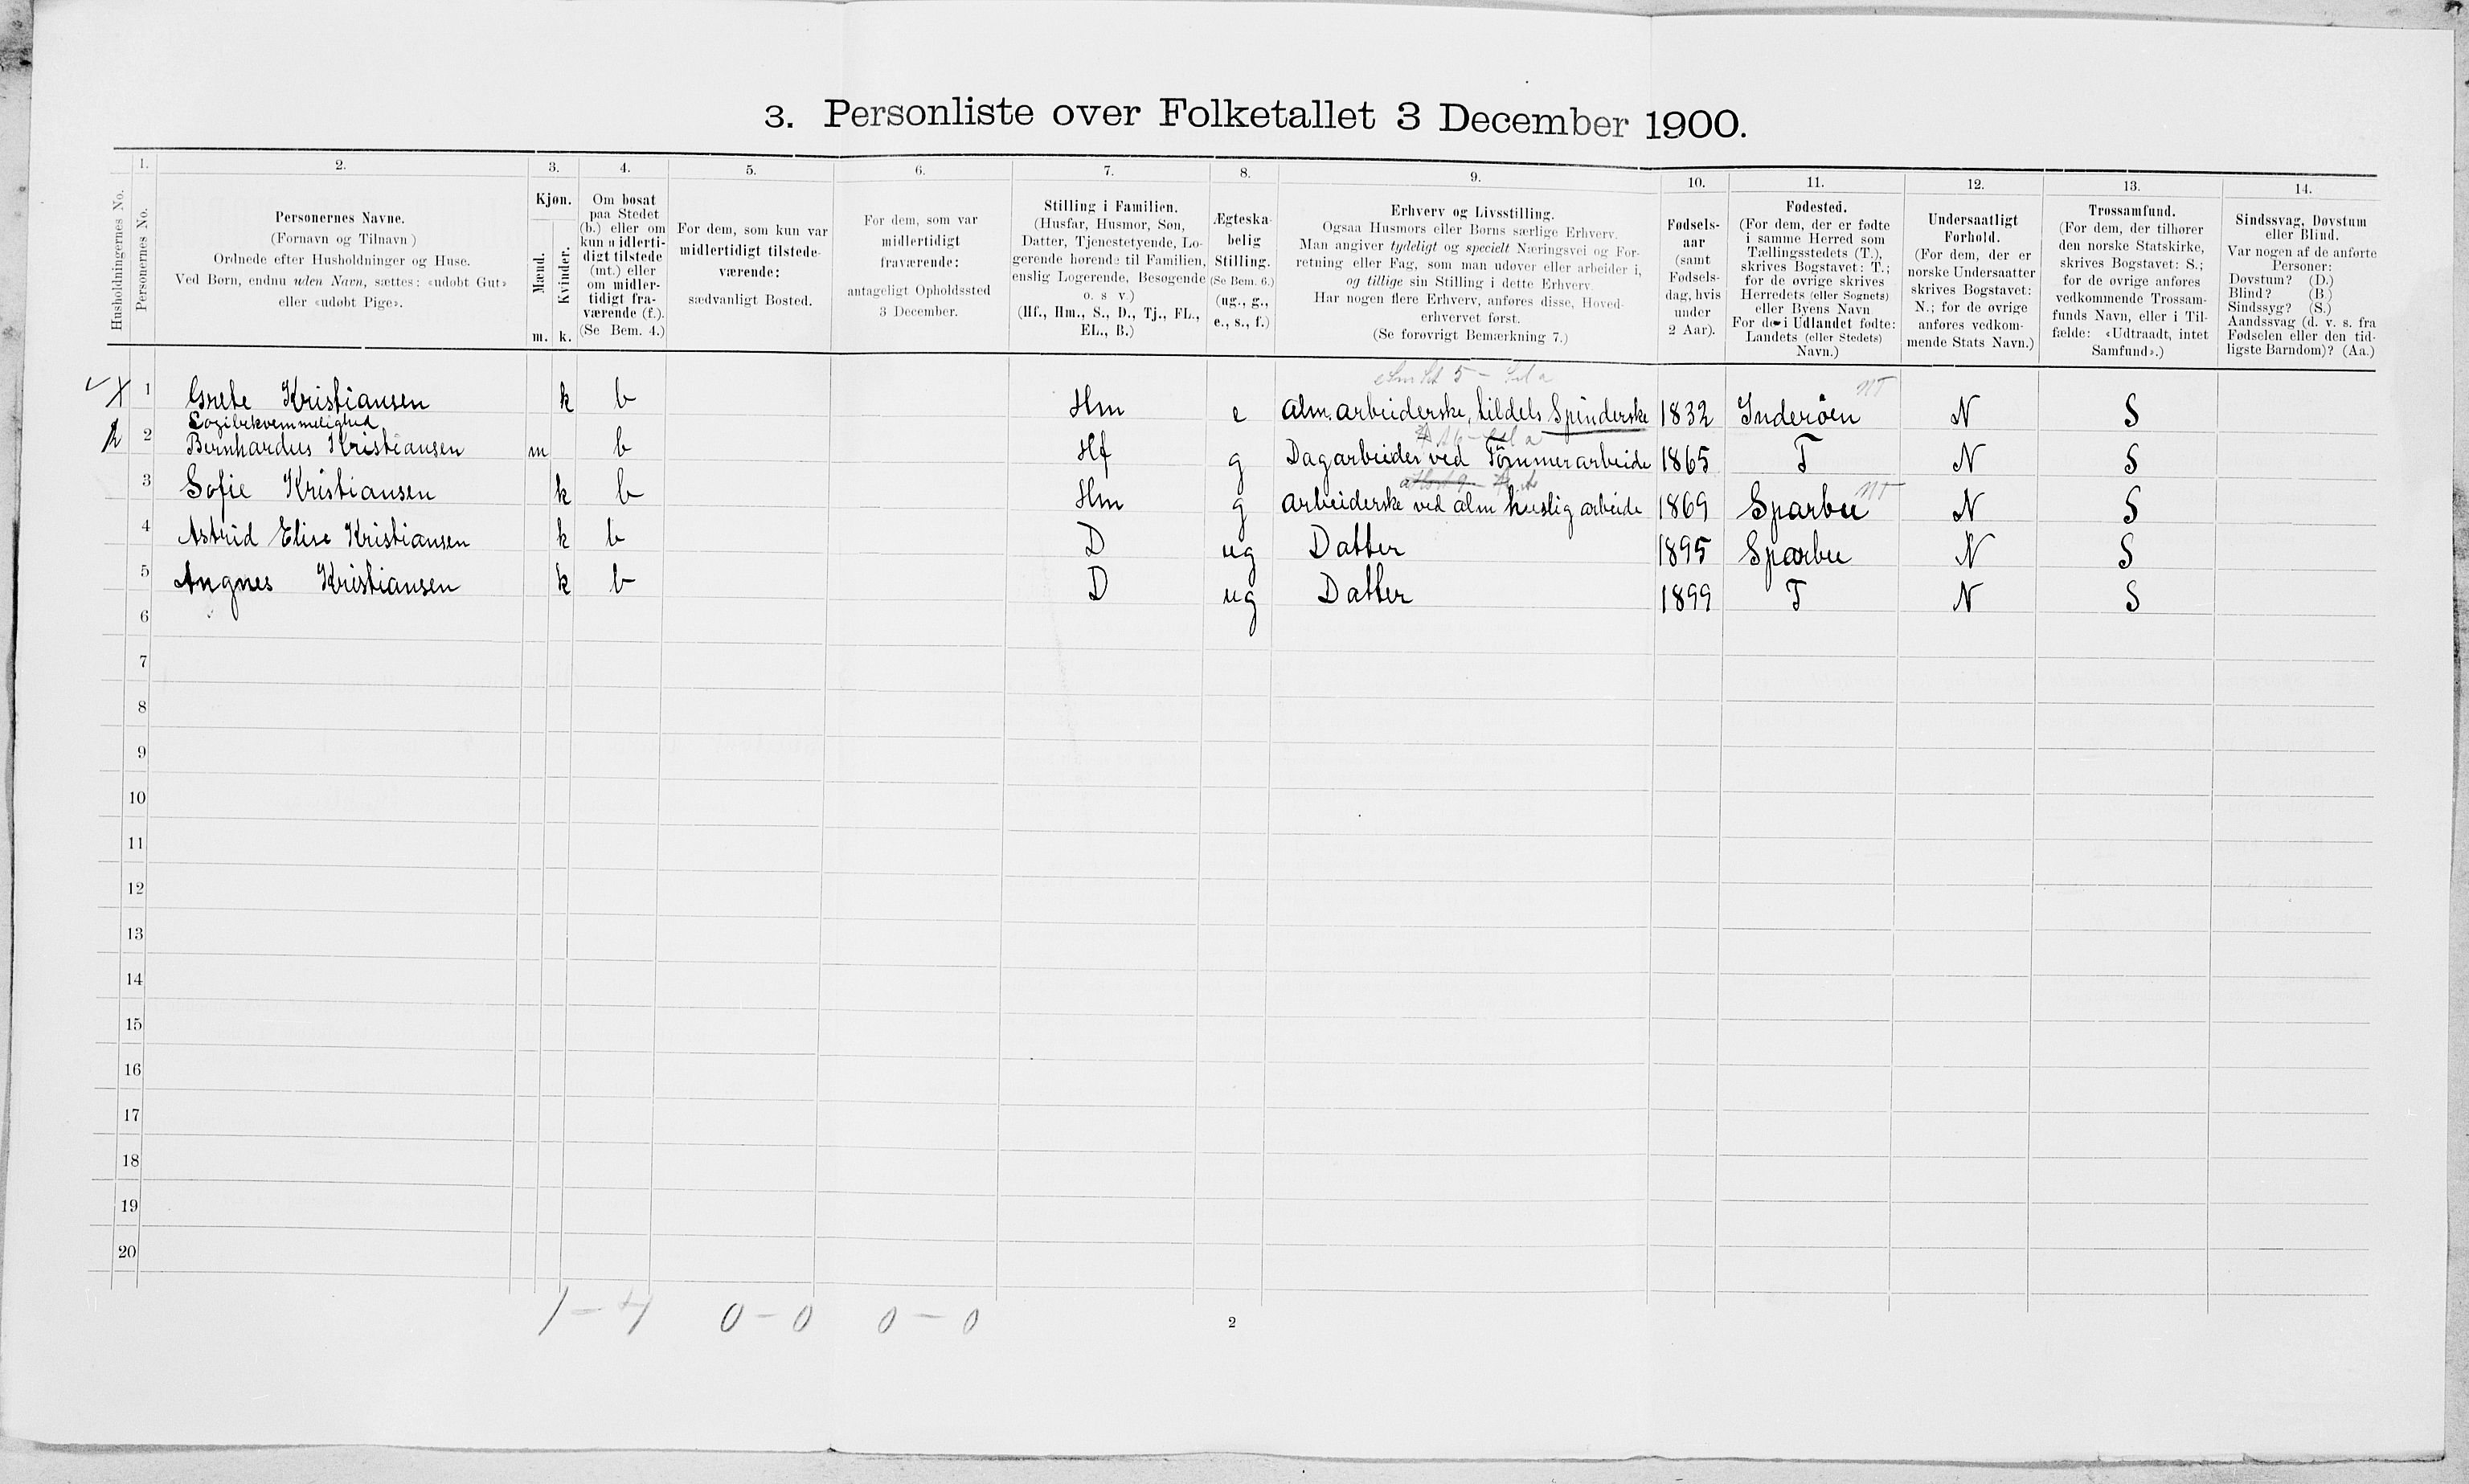 3. Personliste over Folketallet 3 December 1900.
Husholdningernes No.
1.
Personernes No.
2.
Personernes Navne.
(Fornavn og Tilnavn)
Ordnede efter Husholdninger og Huse.
Ved Børn, endnu uden Navn, sættes: «udøbt Gut»
eller «udøbt Pige».
3.
Kjøn.
Mænd.
Kvinder.
m. k.
4.
Om bosat
paa Stedet
(b.) eller om
kun midlerti-
digt tilstede
(mt.) eller
om midler-
tidigt fra-
værende (f.).
(Se Bem. 4.)
5.
For dem, som kun var
midlertidigt tilstede-
værende:
sædvanligt Bosted.
6.
For dem, som var
midlertidigt
fraværende:
antageligt Opholdssted
3 December.
7.
Stilling i Familien.
(Husfar, Husmor, Søn,
Datter, Tjenestetyende, Lo-
gerende hørende til Familien,
enslig Logerende, Besøgende
o. s v.)
(Hf., Hm., S., D., Tj., FL.,
EL., B.)
8.
Ægteska-
belig
Stilling.
(Se Bem. 6.)
(ug., g.,
e., s., f.)
9.
Erhverv og Livsstilling.
Ogsaa Husmors eller Børns særlige Erhverv.
Man angiver tydeligt og specielt Næringsvei og For-
retning eller Fag, som man udøver eller arbeider i,
og tillige sin Stilling i dette Erhverv.
Har nogen flere Erhverv, anføres disse, Hoved-
erhvervet først.
(Se forøvrigt Bemærkning 7.)
10.
Fødsels-
aar
(samt
Fødsels-
dag, hvis
under
2 Aar).
11.
Fødested.
(For dem, der er fødte
i samme Herred som
Tællingsstedets (T.),
skrives Bogstavet: T.;
for de øvrige skrives
Herredets (eller Sognets)
eller Byens Navn.
For de i Udlandet fødte:
Landets (eller Stedets)
Navn.)
12.
Undersaatligt
Forhold.
(For dem, der er
norske Undersaatter
skrives Bogstavet:
N.; for de øvrige
anføres vedkom-
mende Stats Navn.)
13.
Trossamfund.
(For dem, der tilhører
den norske Statskirke,
skrives Bogstavet: S.;
for de øvrige anføres
vedkommende Trossam-
funds Navn, eller i Til-
fælde: «Udtraadt, intet
Samfund».)
14.
Sindssvag, Døvstum
eller Blind.
Var nogen af de anførte
Personer:
Døvstum? (D.)
Blind? (B)
Sindssyg? (S.)
Aandssvag (d. v. s. fra
Fødselen eller den tid-
ligste Barndom)? (Aa.)
1 Grete Kristiansen k b Hm e Alm. arbeiderske, tildels Spinderske 1832 Inderöen NT N S
Logibekvemmelighed
2 2 Bernhardus Kristiansen m b Hf g Dagarbeider ved Tömmerarbeide 1865 T N S
3 Sofie Kristiansen k b Hm g Arbeiderske ved alm huslig arbeide 1869 Sparbu NT N S
4 Astrid Elise Kristiansen k b D ug Datter 1895 Sparbu N S
5 Angnes Kristiansen k b D ug Datter 1899 T N S
6
7
8
9
10
11
12
13
14
15
16
17
18
19
20
1 - 4 0 - 0 0 - 0
2